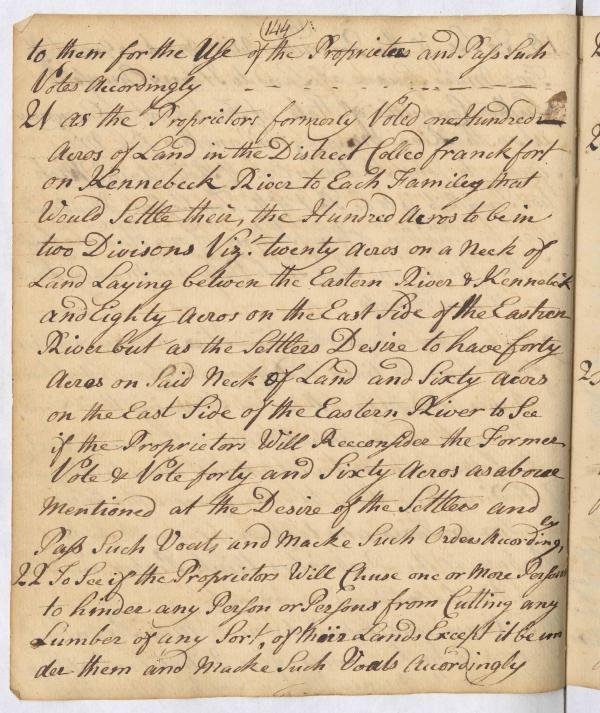 (144)
to them for the Use of the Proprietors and Pass Such
Votes Accordingly
21 as the Proprietors formorly Voted one Hundred
Acros of Land in the District Called franckfort
on Kennebeck River to Each Familey that
Would Settle their, the Hundred Acros to be in
two Divisons Viz.t twenty Acros on a Neck of
Land Laying between the Eastern River & Kennebeck
and Eighty Acros on the East Side of the Eastren
River but as the Settlers Desire to have forty
Acres on Said Neck of Land and Sixty acors
on the East Side of the Eastern River to See
if the Proprietors Will Reeconsider the Former
Vote & Vote forty and Sixty Acros as above
Mentioned at the Desire of the Settlers and
Pass Such Voats and Macke Such Orders Accordingly,
22 To See if the Proprietors Will Chuse one or More Persons
to hinder any Person or Persons from Cutting any
Lumber of any Sort, of their Lands Except it be un
der them and Macke Such Voats Accordingly